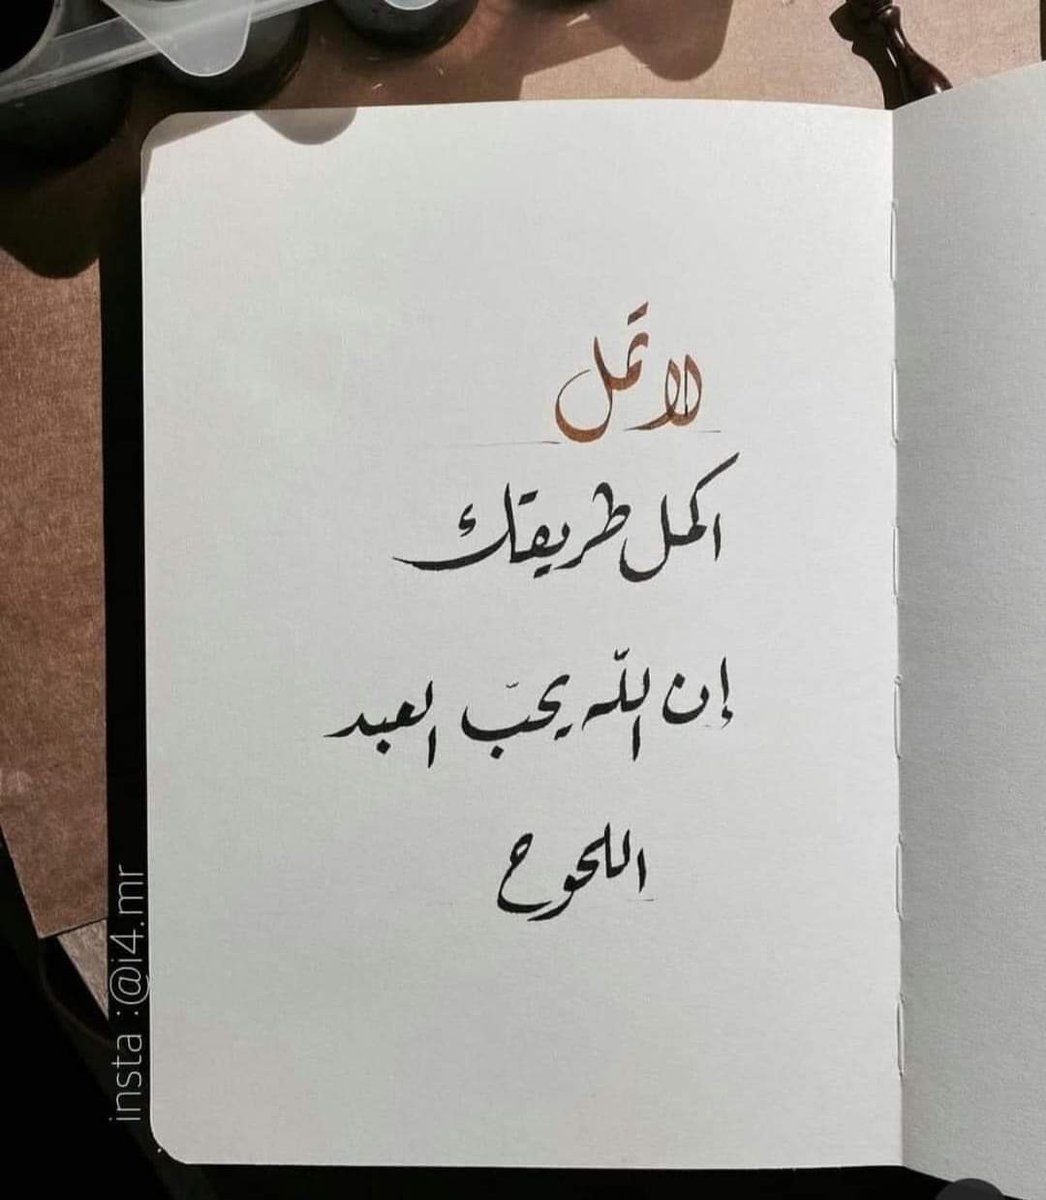 لا تمل
اكمل طريقك
إن اللّه يحبّ العبد
اللحوح
insta :@i4.mr